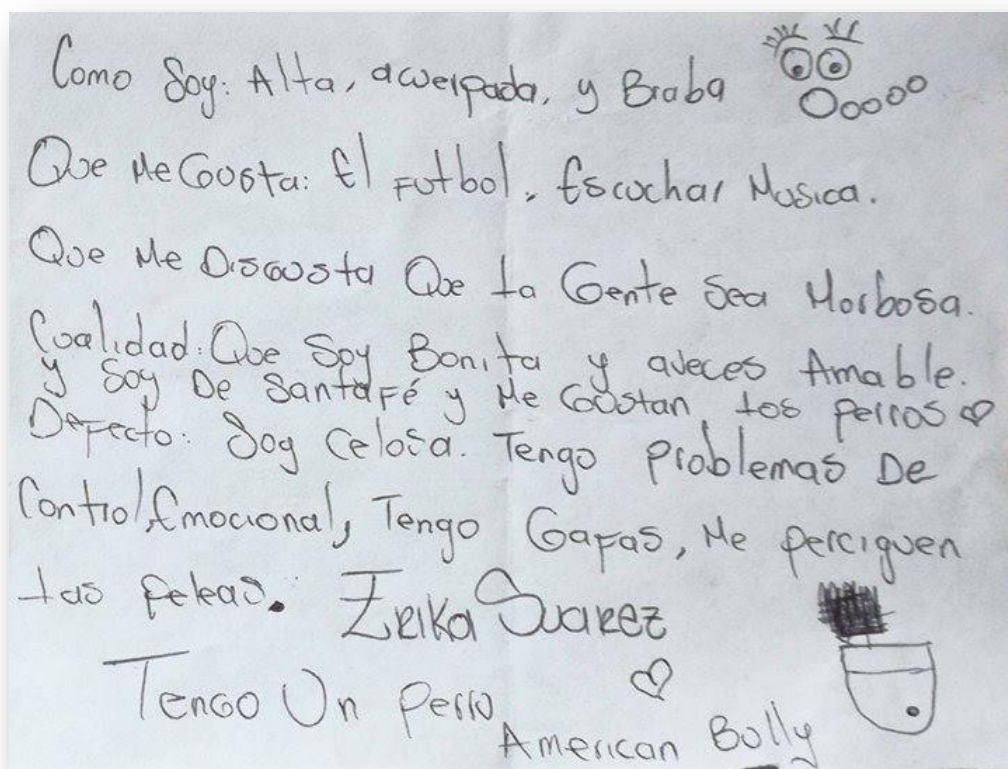 Como Soy: Alta, acuerpada, y Braba
Que Me Gusta: El Futbol, Escuchar Musica.
Que Me Disgusta Que La Gente Sea Morbosa.
Cualidad: Que Soy Bonita y aveces Amable.
y Soy De Santa Fé y Me Gustan Los Perros
Defecto: Soy Celosa. Tengo Problemas De
Control Emocional, Tengo Gafas, Me Perciguen
Las Peleas. Erika Suarez
Tengo Un Perro
American Bully